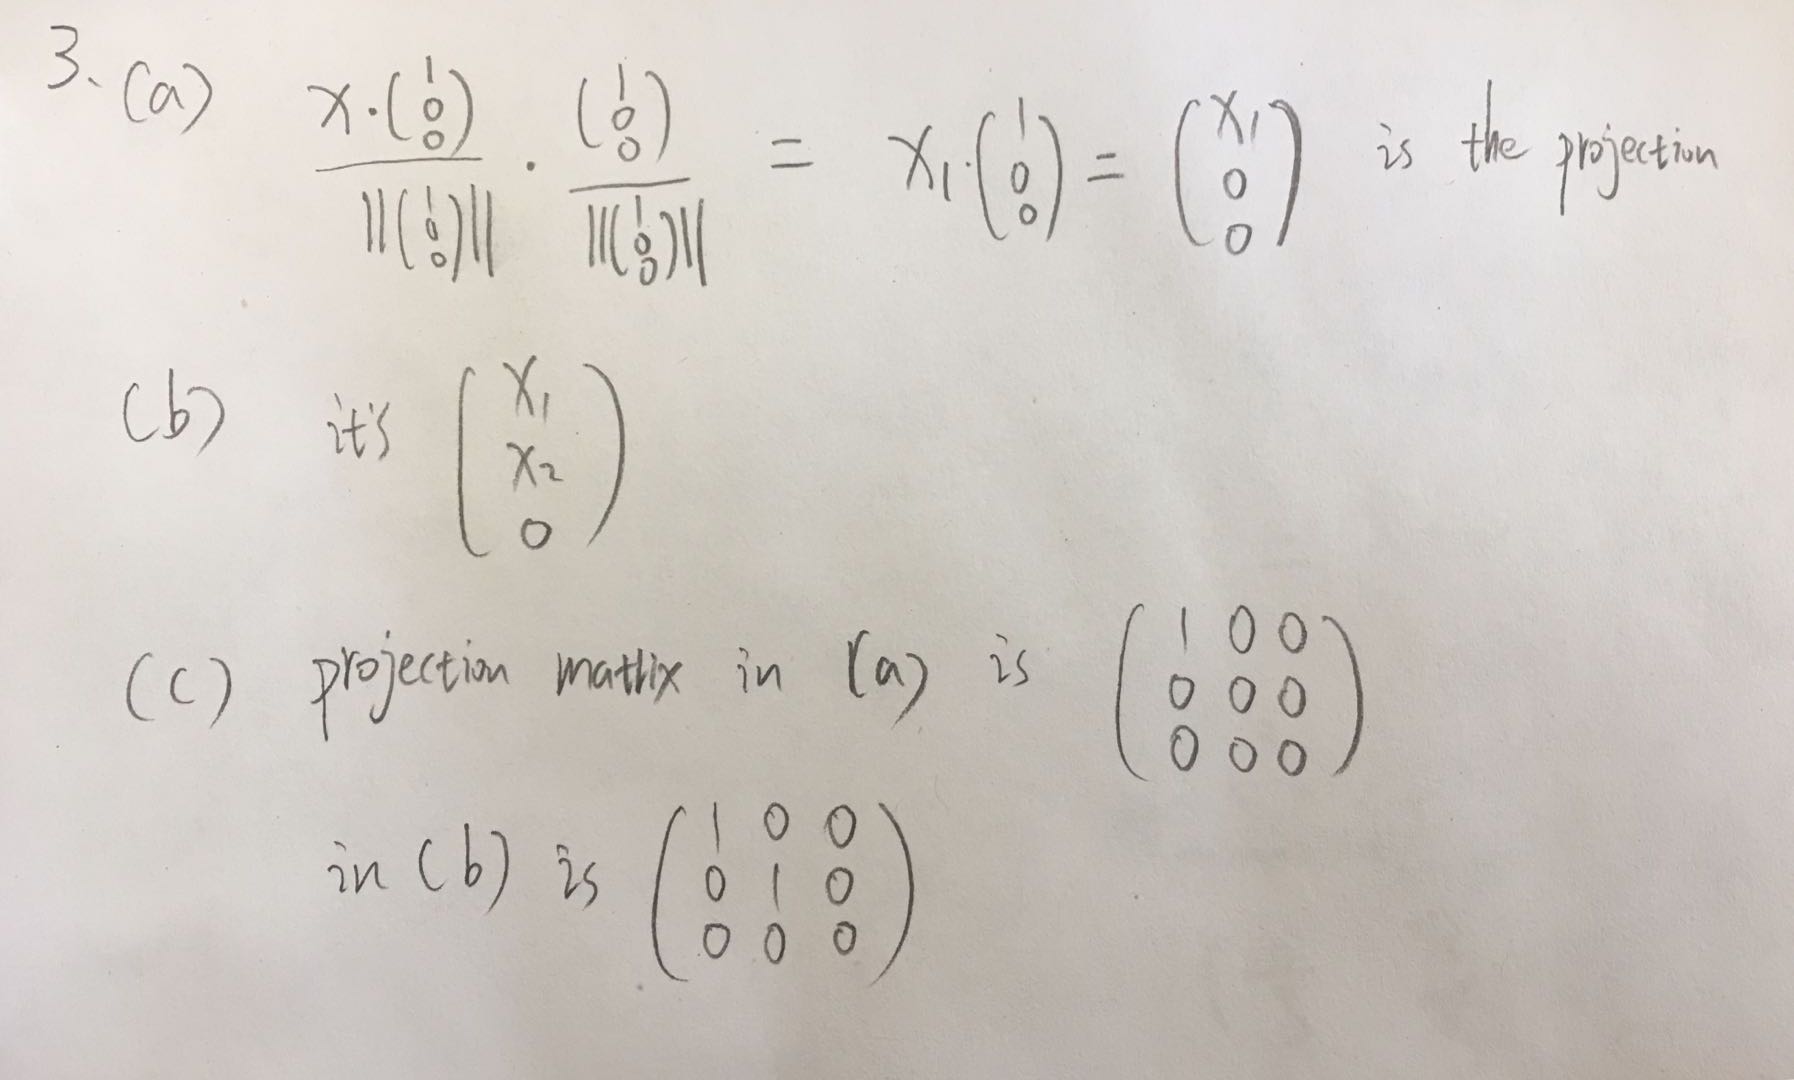 3. (a) \frac{x \cdot \begin{pmatrix} 1 \\ 0 \\ 0 \end{pmatrix}}{||\begin{pmatrix} 1 \\ 0 \\ 0 \end{pmatrix}||} \cdot \frac{\begin{pmatrix} 1 \\ 0 \\ 0 \end{pmatrix}}{||\begin{pmatrix} 1 \\ 0 \\ 0 \end{pmatrix}||} = x_1 \cdot \begin{pmatrix} 1 \\ 0 \\ 0 \end{pmatrix} = \begin{pmatrix} x_1 \\ 0 \\ 0 \end{pmatrix} is the projection
(b) it's \begin{pmatrix} x_1 \\ x_2 \\ 0 \end{pmatrix}
(c) projection matrix in (a) is \begin{pmatrix} 1 & 0 & 0 \\ 0 & 0 & 0 \\ 0 & 0 & 0 \end{pmatrix}
in (b) is \begin{pmatrix} 1 & 0 & 0 \\ 0 & 1 & 0 \\ 0 & 0 & 0 \end{pmatrix}